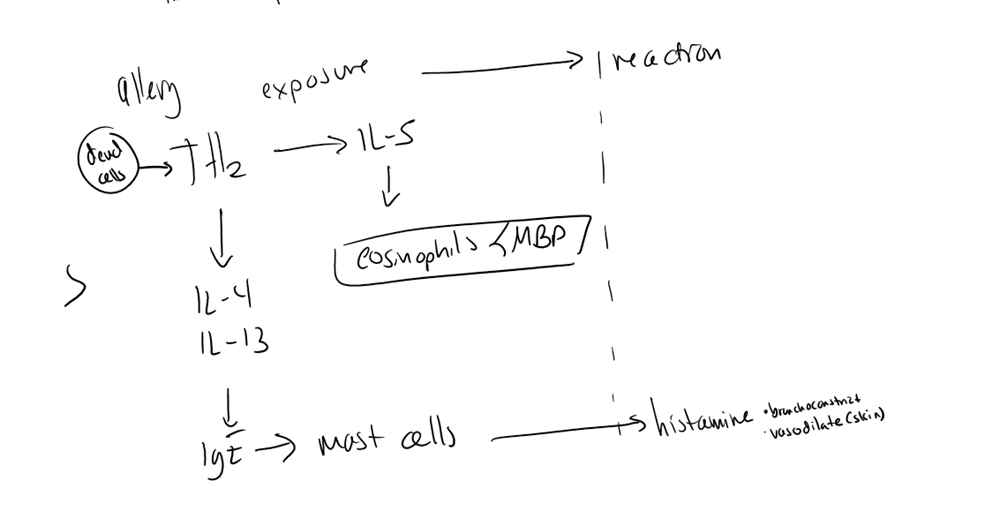 allery exposure → | reaction
dend cells → TH2 → IL-5
↓
eosinophils < MBP
↓
IL-4
IL-13
↓
IgE → mast cells → histamine
• bronchoconstrict
• vasodilate (skin)